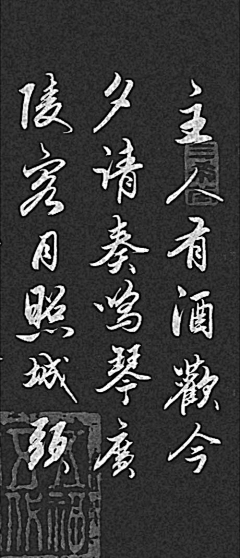 主人有酒歡今
夕请奏鳴琴廣
陵客月照城頭